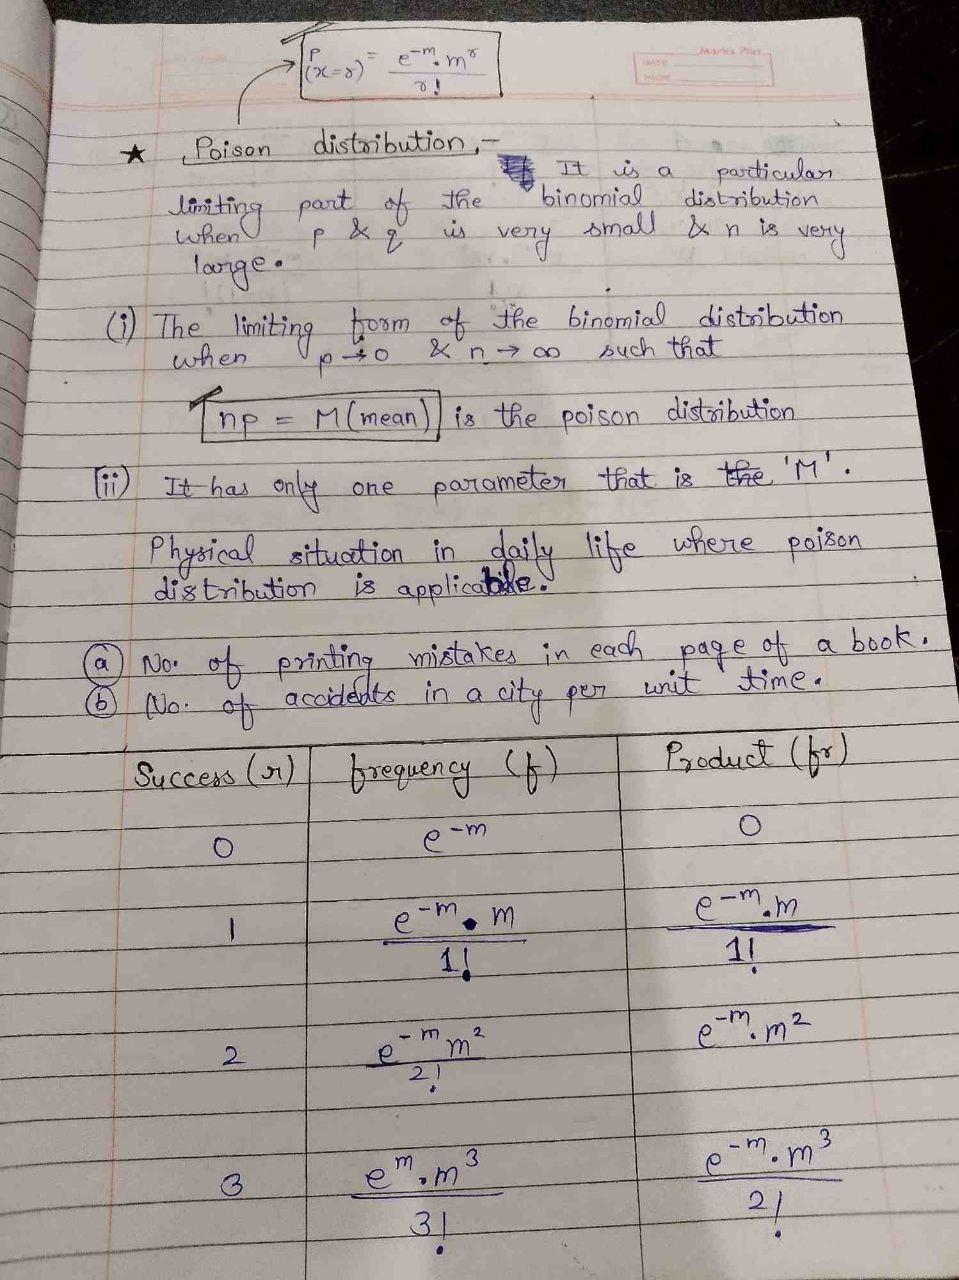 P(x=r) = e^-m . m^r / r!
Marks Plus
DATE
PAGE
★ Poison distribution,-
It is a particular
limiting part of the binomial distribution
when p & q is very small & n is very
large.
(i) The limiting form of the binomial distribution
when p→0 & n→∞ such that
np = M(mean) is the poison distribution
(ii) It has only one parameter that is the 'M'.
Physical situation in daily life where poison
distribution is applicable.
(a) No. of printing mistakes in each page of a book.
(b) No. of accidents in a city per unit time.
Success (r) frequency (f) Product (fr)
0 e^-m 0
1 e^-m . m / 1! e^-m . m / 1!
2 e^-m m^2 / 2! e^-m . m^2
3 e^m . m^3 / 3! e^-m . m^3 / 2!